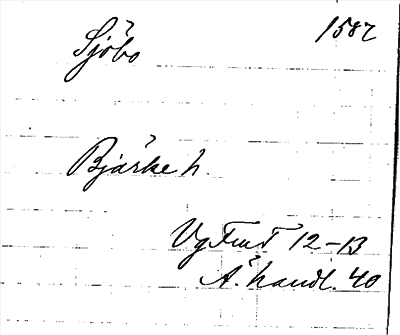 Sjöbo 1582
Bjärke h.
Vg FmT 12-13
Ä. handl. 40